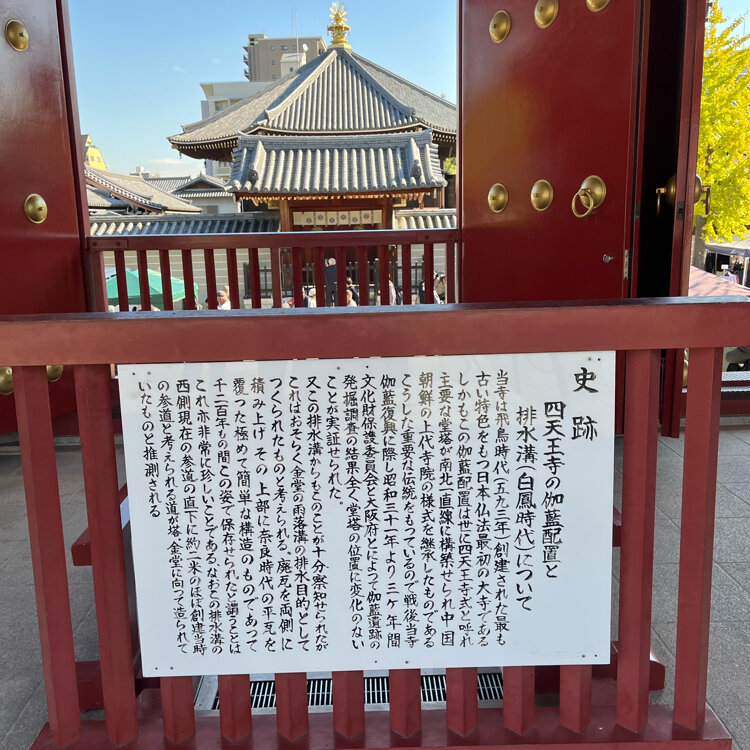 史跡
四天王寺の伽藍配置と
排水溝(白鳳時代)について
当寺は飛鳥時代(五九三年)創建された最も
古い特色をもつ日本仏法最初の大寺である
しかもこの伽藍配置は世に四天王寺式と呼ばれ
主要な堂塔が南北一直線に構築せられ中国
朝鮮の上代寺院の様式を継承したものである
こうした重要な伝統をもっているので戦後当寺
伽藍復興に際し昭和三十一年より三ヶ年間
文化財保護委員会と大阪府とによって伽藍遺跡の
発掘調査の結果全く堂塔の位置に変化のない
ことが実証せられた。
又この排水溝からもこのことが十分察知せられたが
これはおそらく金堂の雨落溝の排水目的として
つくられたものと考えられる、廃瓦を両側に
積み上げ その 上部に奈良時代の平瓦を
覆った極めて簡単な構造のものであって
千二百年もの間この姿で保存せられたと謂うことは
これ亦非常に珍しいことである、なおこの排水溝の
西側現在の参道の直下に約一米のほぼ創建当時
の参道と考えられる道が塔、金堂に向って造られて
いたものと推測される